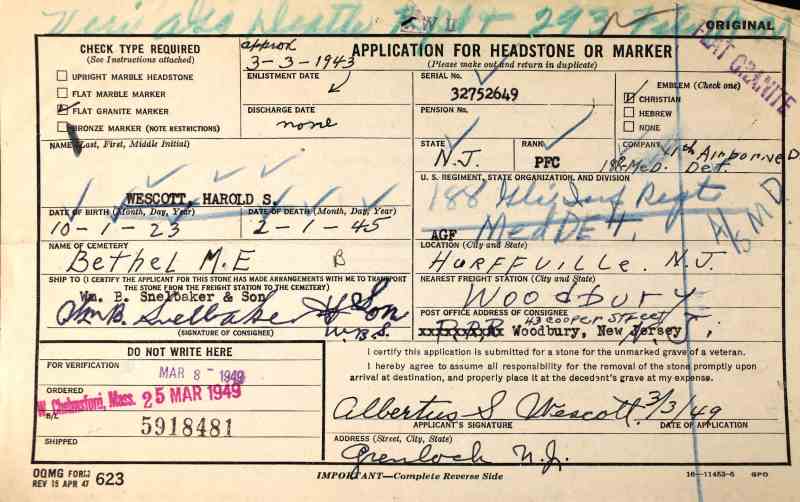 W D
ORIGINAL
FLAT GRANITE
CHECK TYPE REQUIRED
(See Instructions attached)
UPRIGHT MARBLE HEADSTONE
FLAT MARBLE MARKER
FLAT GRANITE MARKER
BRONZE MARKER (NOTE RESTRICTIONS)
approx
3-3-1943
ENLISTMENT DATE
DISCHARGE DATE
none
APPLICATION FOR HEADSTONE OR MARKER
(Please make out and return in duplicate)
SERIAL No.
32752649
PENSION No.
EMBLEM (Check one)
CHRISTIAN
HEBREW
NONE
STATE
N.J.
RANK
PFC
COMPANY
11th Airborne D
188 MeD. Det.
NAME (Last, First, Middle Initial)
WESCOTT, HAROLD S.
U. S. REGIMENT, STATE ORGANIZATION, AND DIVISION
188
AGF
DATE OF BIRTH (Month, Day, Year)
10-1-23
DATE OF DEATH (Month, Day, Year)
2-1-45
NAME OF CEMETERY
Bethel M.E B
LOCATION (City and State)
HURFFVILLE. N.J.
SHIP TO (I CERTIFY THE APPLICANT FOR THIS STONE HAS MADE ARRANGEMENTS WITH ME TO TRANSPORT
THE STONE FROM THE FREIGHT STATION TO THE CEMETERY)
Wm. B. Snelbaker & Son
Wm B. Snelbaker & Son
W.B.S.
(SIGNATURE OF CONSIGNEE)
NEAREST FREIGHT STATION (City and State)
WOODBURY
N.J.
POST OFFICE ADDRESS OF CONSIGNEE
43 COOPER STREET
Woodbury, New Jersey
DO NOT WRITE HERE
FOR VERIFICATION
MAR 8 - 1949
ORDERED
W. Chelmsford, Mass. 25 MAR 1949
B/L
5918481
SHIPPED
I certify this application is submitted for a stone for the unmarked grave of a veteran.
I hereby agree to assume all responsibility for the removal of the stone promptly upon
arrival at destination, and properly place it at the decedent's grave at my expense.
Albertus S Wescott 3/3/49
APPLICANT'S SIGNATURE
DATE OF APPLICATION
ADDRESS (Street, City, State)
Grenloch N.J.
OQMG FORM
REV 15 APR 47 623
IMPORTANT—Complete Reverse Side
16-11453-6 GPO